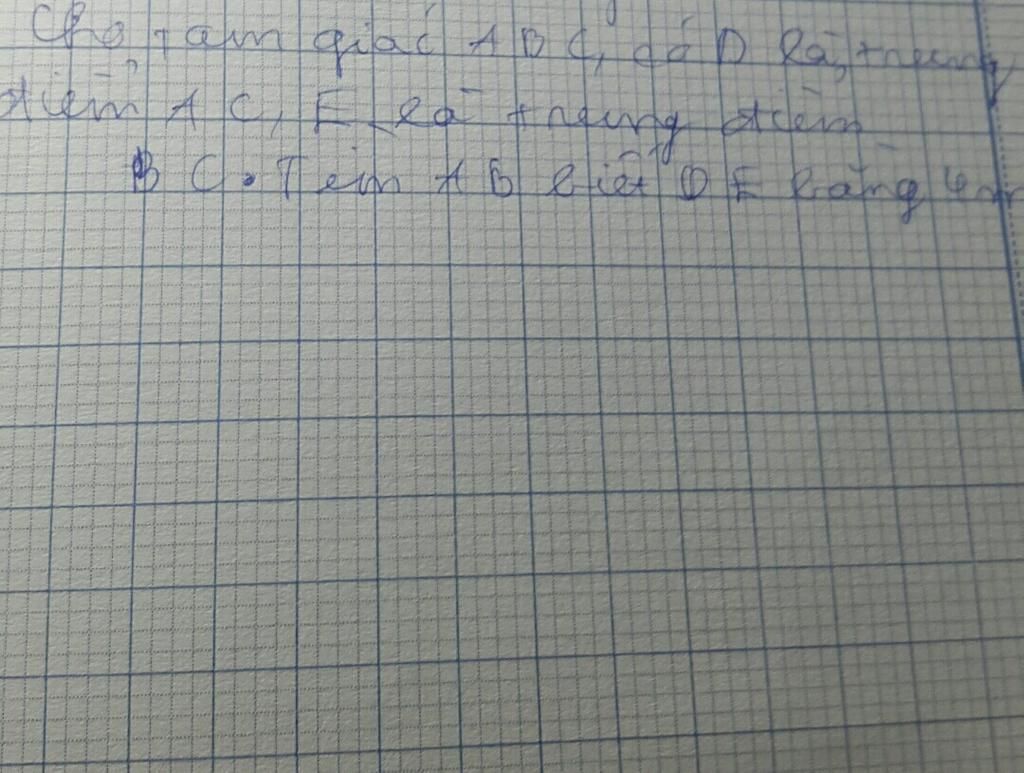 Cho tam giác ABC, có D là trung
điểm AC, E là trung điểm
BC. Tìm AB biết DE bằng